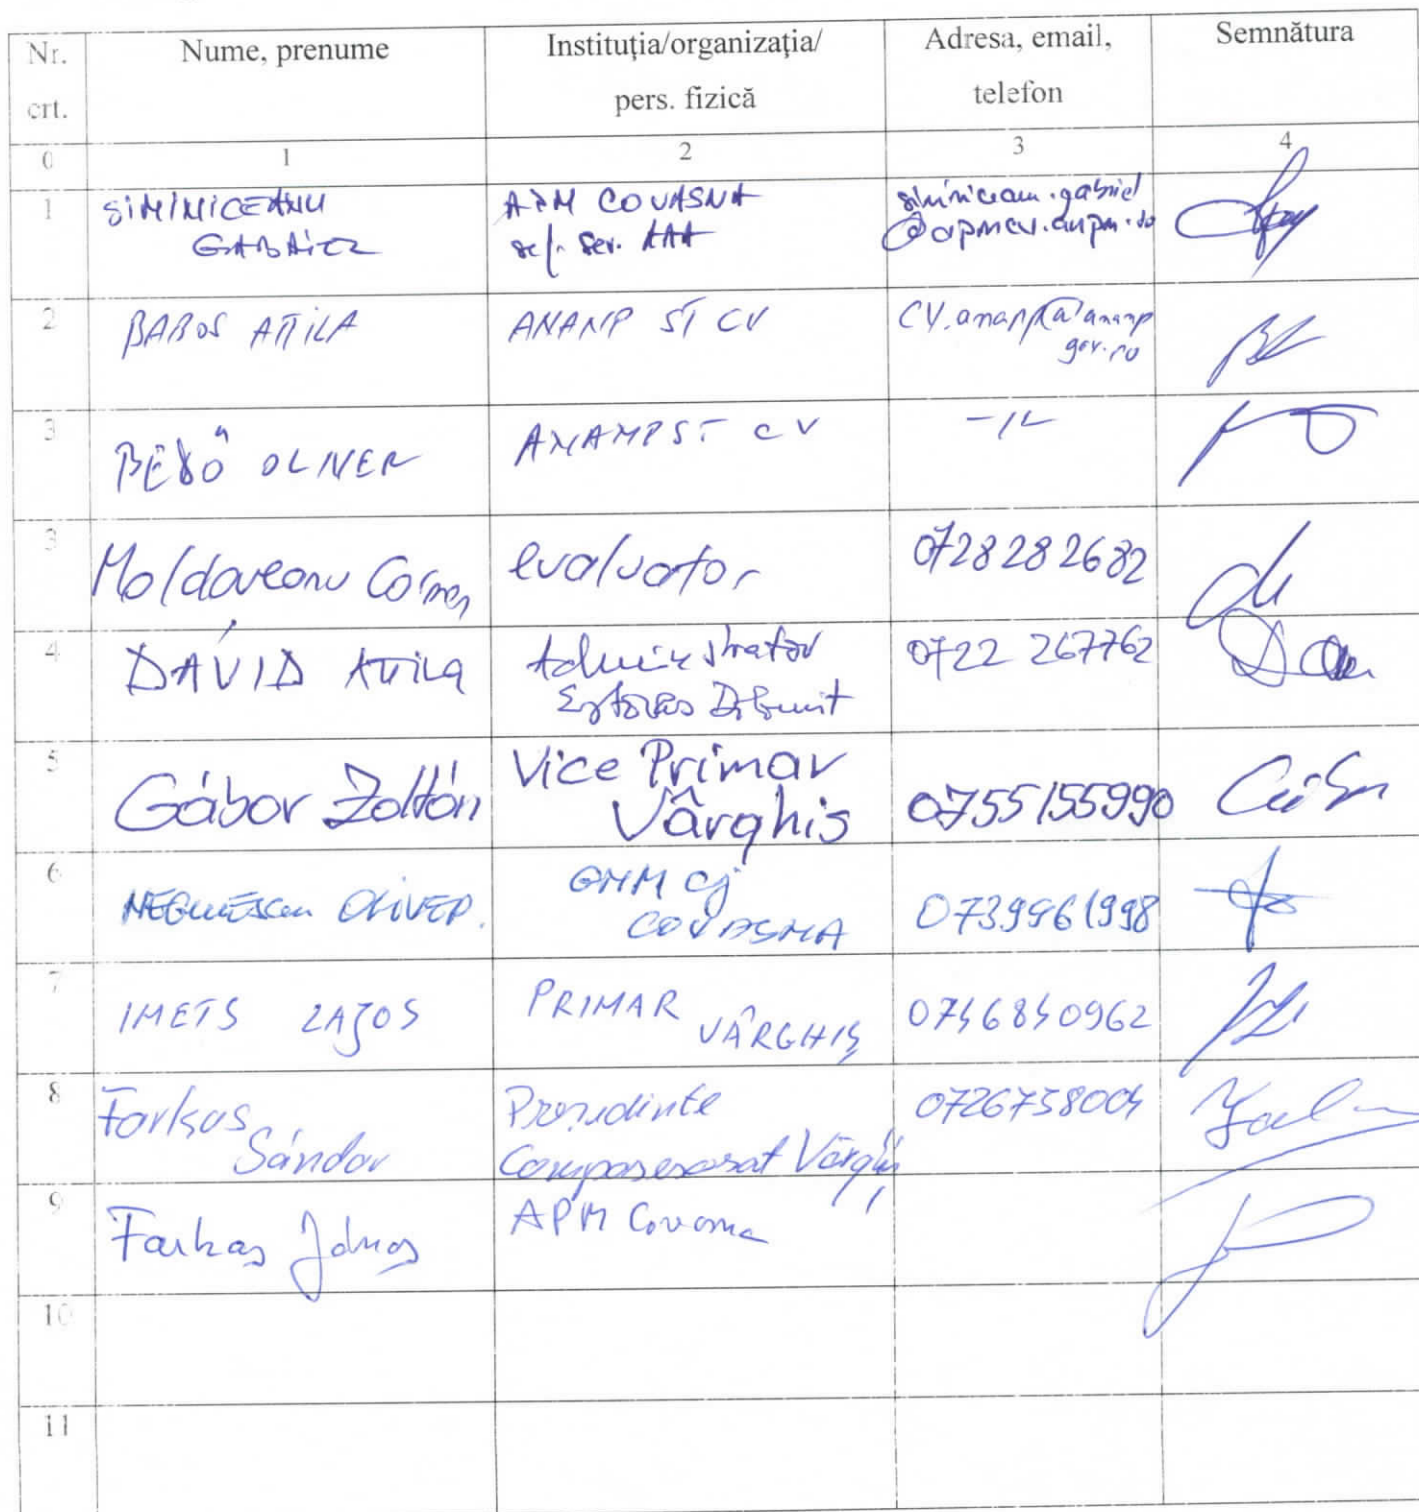 Nr. crt. Nume, prenume Instituția/organizația/ pers. fizică Adresa, email, telefon Semnătura
0 1 2 3 4
1 SIMINICEANU GABRIEL APM COVASNA șef. ser. AAA
2 BABOS ATTILA ANANP ST CV
3 BEDŐ OLIVER ANANP ST CV -//-
3 Moldoveanu evaluator 0728282682
4 DÁVID Attila Administrator 0722 267762
5 Gábor Zoltán Vice Primar Vârghis 0755155990
6 NEGULESCU OLIVER. GNM CJ COVASNA
7 IMETS LAJOS PRIMAR VÂRGHIȘ 0746840962
8 Farkas Sándor Președinte Composesorat Vârghiș
9 Farkas János APM Covasna
10
11